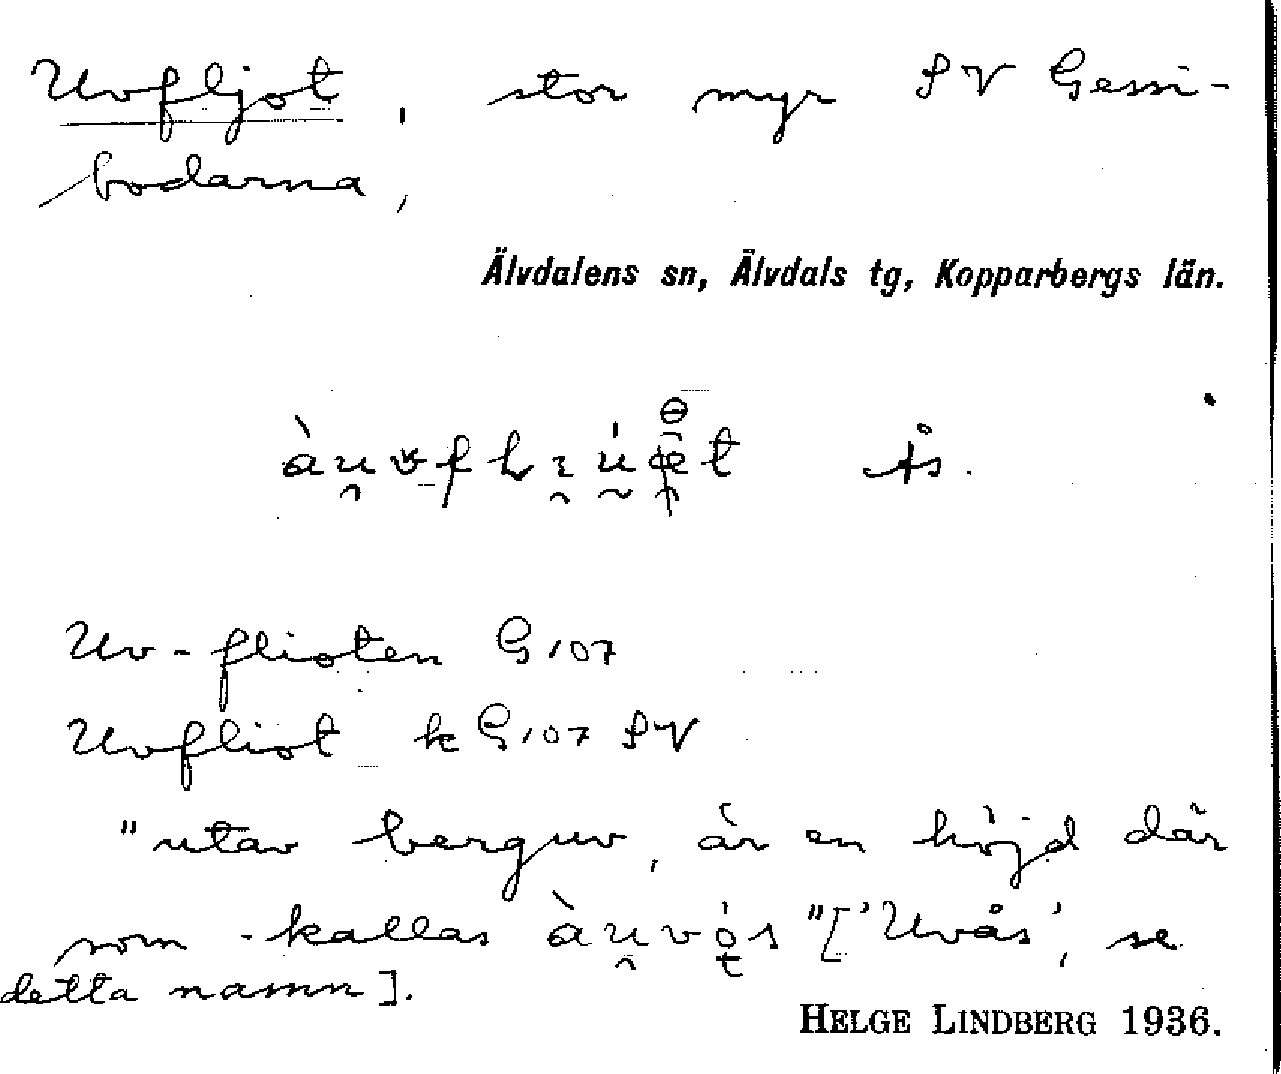 Uvfljot, stor myr SV Gessi-
bodarna,
Älvdalens sn, Älvdals tg, Kopparbergs län.
Ås.
Uv-flioten G 107
Uvfliot k G 107 SV
"utav berguv, är en höjd där
som kallas àu̯vǫ́s" ['Uvås', se
detta namn].
HELGE LINDBERG 1936.